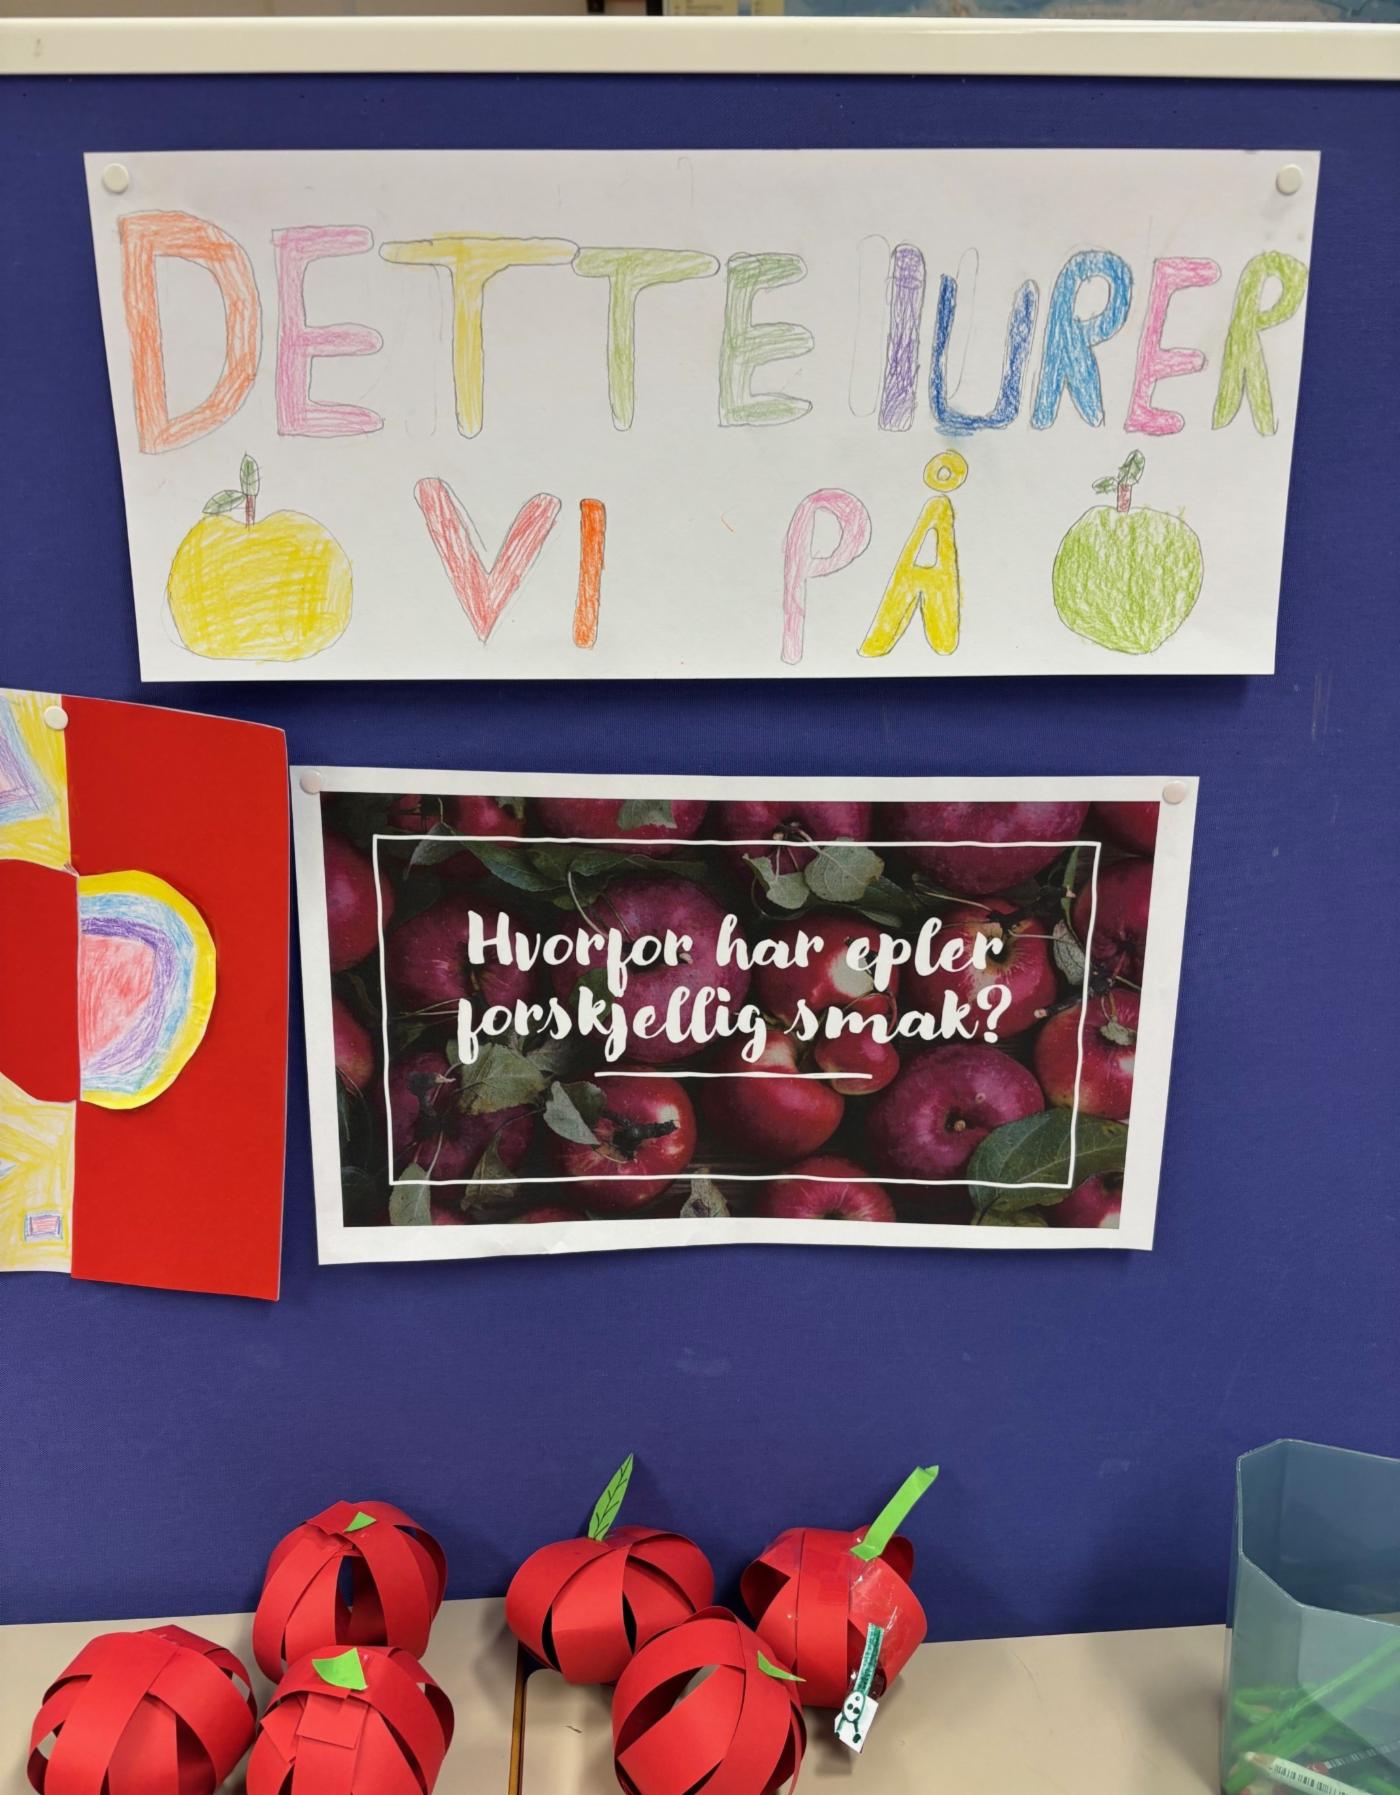 DETTE lURER
VI PÅ
Hvorfor har epler
forskjellig smak?